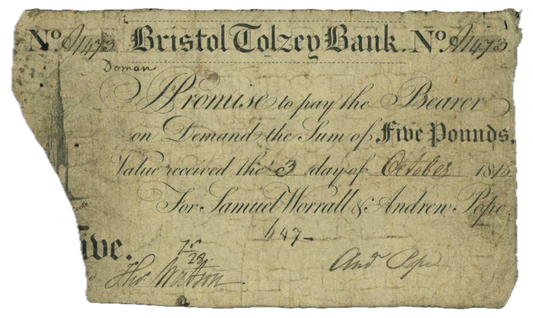 No. A1473 Bristol Tolzey Bank. No. A1473
Doman
I Promise to pay the Bearer
on Demand the Sum of Five Pounds.
Value received the 3 day of October 181
For Samuel Worrall & Andrew Pope
ive.
And Pope
Tho Watson